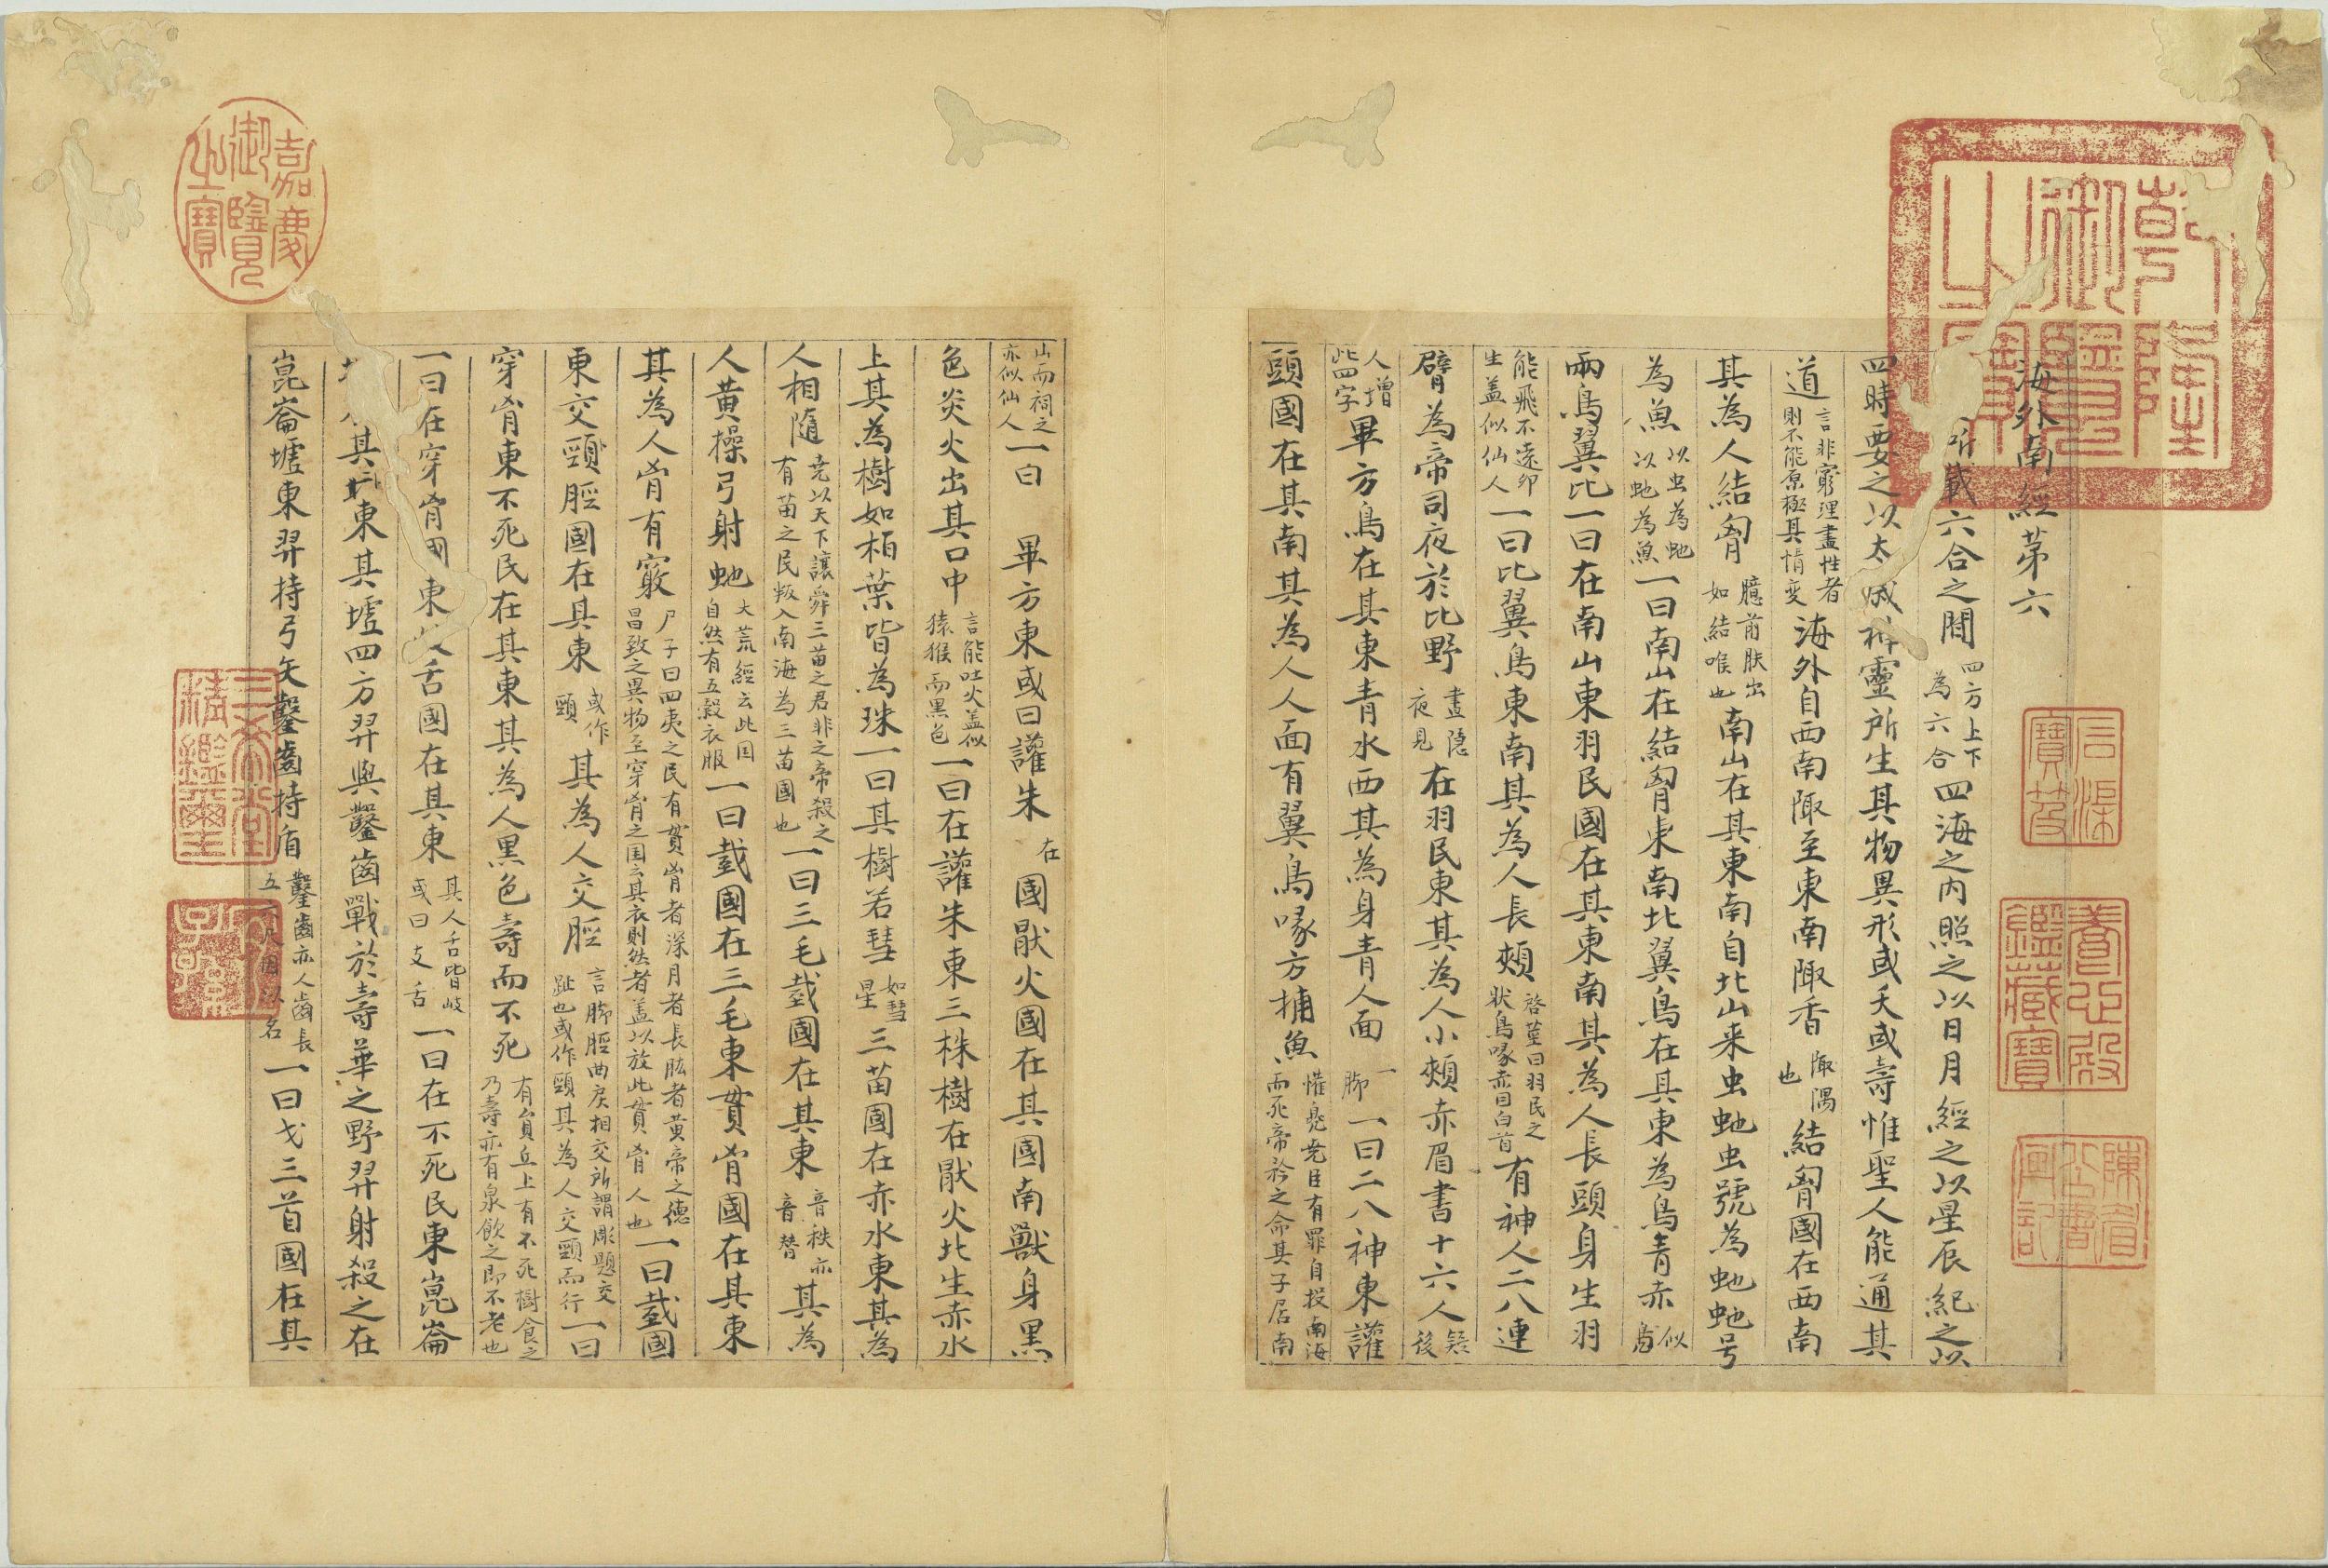 海外南經第六
所載六合之間四方上下為六合四海之内照之以日月經之以星辰紀之以
四時要之以太歲神靈所生其物異形或夭或壽惟聖人能通其
道言非窮理盡性者則不能原極其情変海外自西南陬至東南陬香陬隅也結匈國在西南
其為人結匈臆前胅出如結喉也南山在其東南自北山来虫虵虫號為虵虵号
為魚以虫為虵以虵為魚一曰南山在結匈東南比翼鳥在其東為鳥青赤似鳧
兩鳥翼比一曰在南山東羽民國在其東南其為人長頭身生羽
能飛不遠卵生盖似仙人一曰比翼鳥東南其為人長頰啓莖曰羽民之狀鳥喙赤目白首有神人二八連
臂為帝司夜於比野晝隱夜見在羽民東其為人小頰赤眉書十六人疑後
人增此四字畢方鳥在其東青水西其為身青人面一脚一曰二八神東讙
頭國在其南其為人人面有翼鳥喙方捕魚懽兠尧臣有罪自投南海而死帝矜之命其子居南
山而祠之亦似仙人一曰 畢方東或曰讙朱在國厭火國在其國南獸身黑
色炎火出其口中言能吐火盖似猿猴而黑色一曰在讙朱東三株樹在厭火北生赤水
上其為樹如栢葉皆為珠一曰其樹若彗如彗星三苗國在赤水東其為
人相隨尧以天下讓舜三苗之君非之帝殺之有苗之民叛入南海為三苗國也一曰三毛臷國在其東音秩亦音替其為
人黄操弓射虵大荒經云此国自然有五穀衣服一曰臷國在三毛東貫胷國在其東
其為人胷有竅尸子曰四夷之民有貫胷者深月者長肱者黄帝之德昌致之異物至穿胷之国云其衣則然者盖以放此貫胷人也一曰臷國
東交頸脛國在其東或作頸其為人交脛言脚脛曲戾相交所謂彫題交趾也或作頸其為人交頸而行一曰
穿胷東不死民在其東其為人黒色壽而不死有貟丘上有不死樹食之乃壽亦有泉飲之即不老也
一曰在穿胷国東舌國在其東其人舌皆岐或曰支舌一曰在不死民東崑崙
其東其墟四方羿與鑿齒戰於壽華之野羿射殺之在
崑崙墟東羿持弓矢鑿齒持盾鑿齒亦人齒長五六尺因以名一曰戈三首國在其
乾隆御覽之寶
嘉慶御覽之寶
三希堂精鑑璽
宜子孫
石渠寶笈
養心殿鑑藏寶